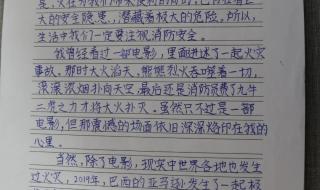 是,火在为我们带来便利的同时,它也存在巨
大的安全隐患,潜藏着极大的危险。所以,
生活中我们一定要注视消防安全。
我曾经看过一部电影,里面讲述了一起火灾
事故,那时大火滔天,熊熊烈火吞噬着一切,
滚滚浓烟扑向天空,最后还是消防员费了九牛
二虎之力才将大火扑灭。虽然只不过是一部
电影,但那震撼的场面依旧深深烙印在我的
心里。
当然,除了电影,现实中世界各地也发生
过火灾,2019年,巴西的亚马逊发生了一起